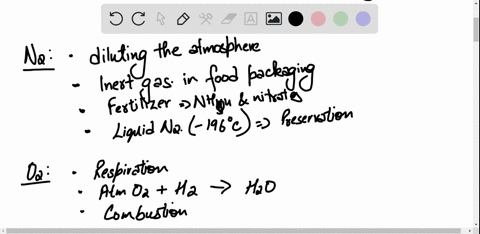 N2: · diluting the atmosphere
· Inert gas in food packaging
· Fertilizer => & nitrates
· Liquid N2 (-196°C) => Preservation
O2: · Respiration
· Atm O2 + H2 → H2O
· Combustion